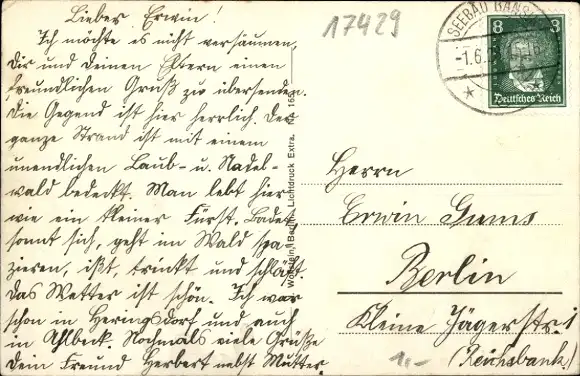 Lieber Erwin!
Ich möchte es nicht versäumen,
Dir und Deinen Eltern einen
freundlichen Gruß zu übersenden.
Die Gegend ist hier herrlich. Der
ganze Strand ist mit einem
unendlichen Laub- u. Nadel-
wald bedeckt. Man lebt hier
wie ein kleiner Fürst. Badet,
sonnt sich, geht im Wald spa
zieren, ißt, trinkt und schläft.
Das Wetter ist schön. Ich war
schon in Heringsdorf und auch
in Ahlbeck. Nochmals viele Grüße
Dein Freund Herbert nebst Mutter.
17429
SEEBAD BANSIN
-1.6.
8 3
Deutsches Reich
Berlin. Lichtdruck Extra.
Herrn
Erwin Gums
Berlin
Kleine Jägerstr. 1
(Reichsbank.)
1,-